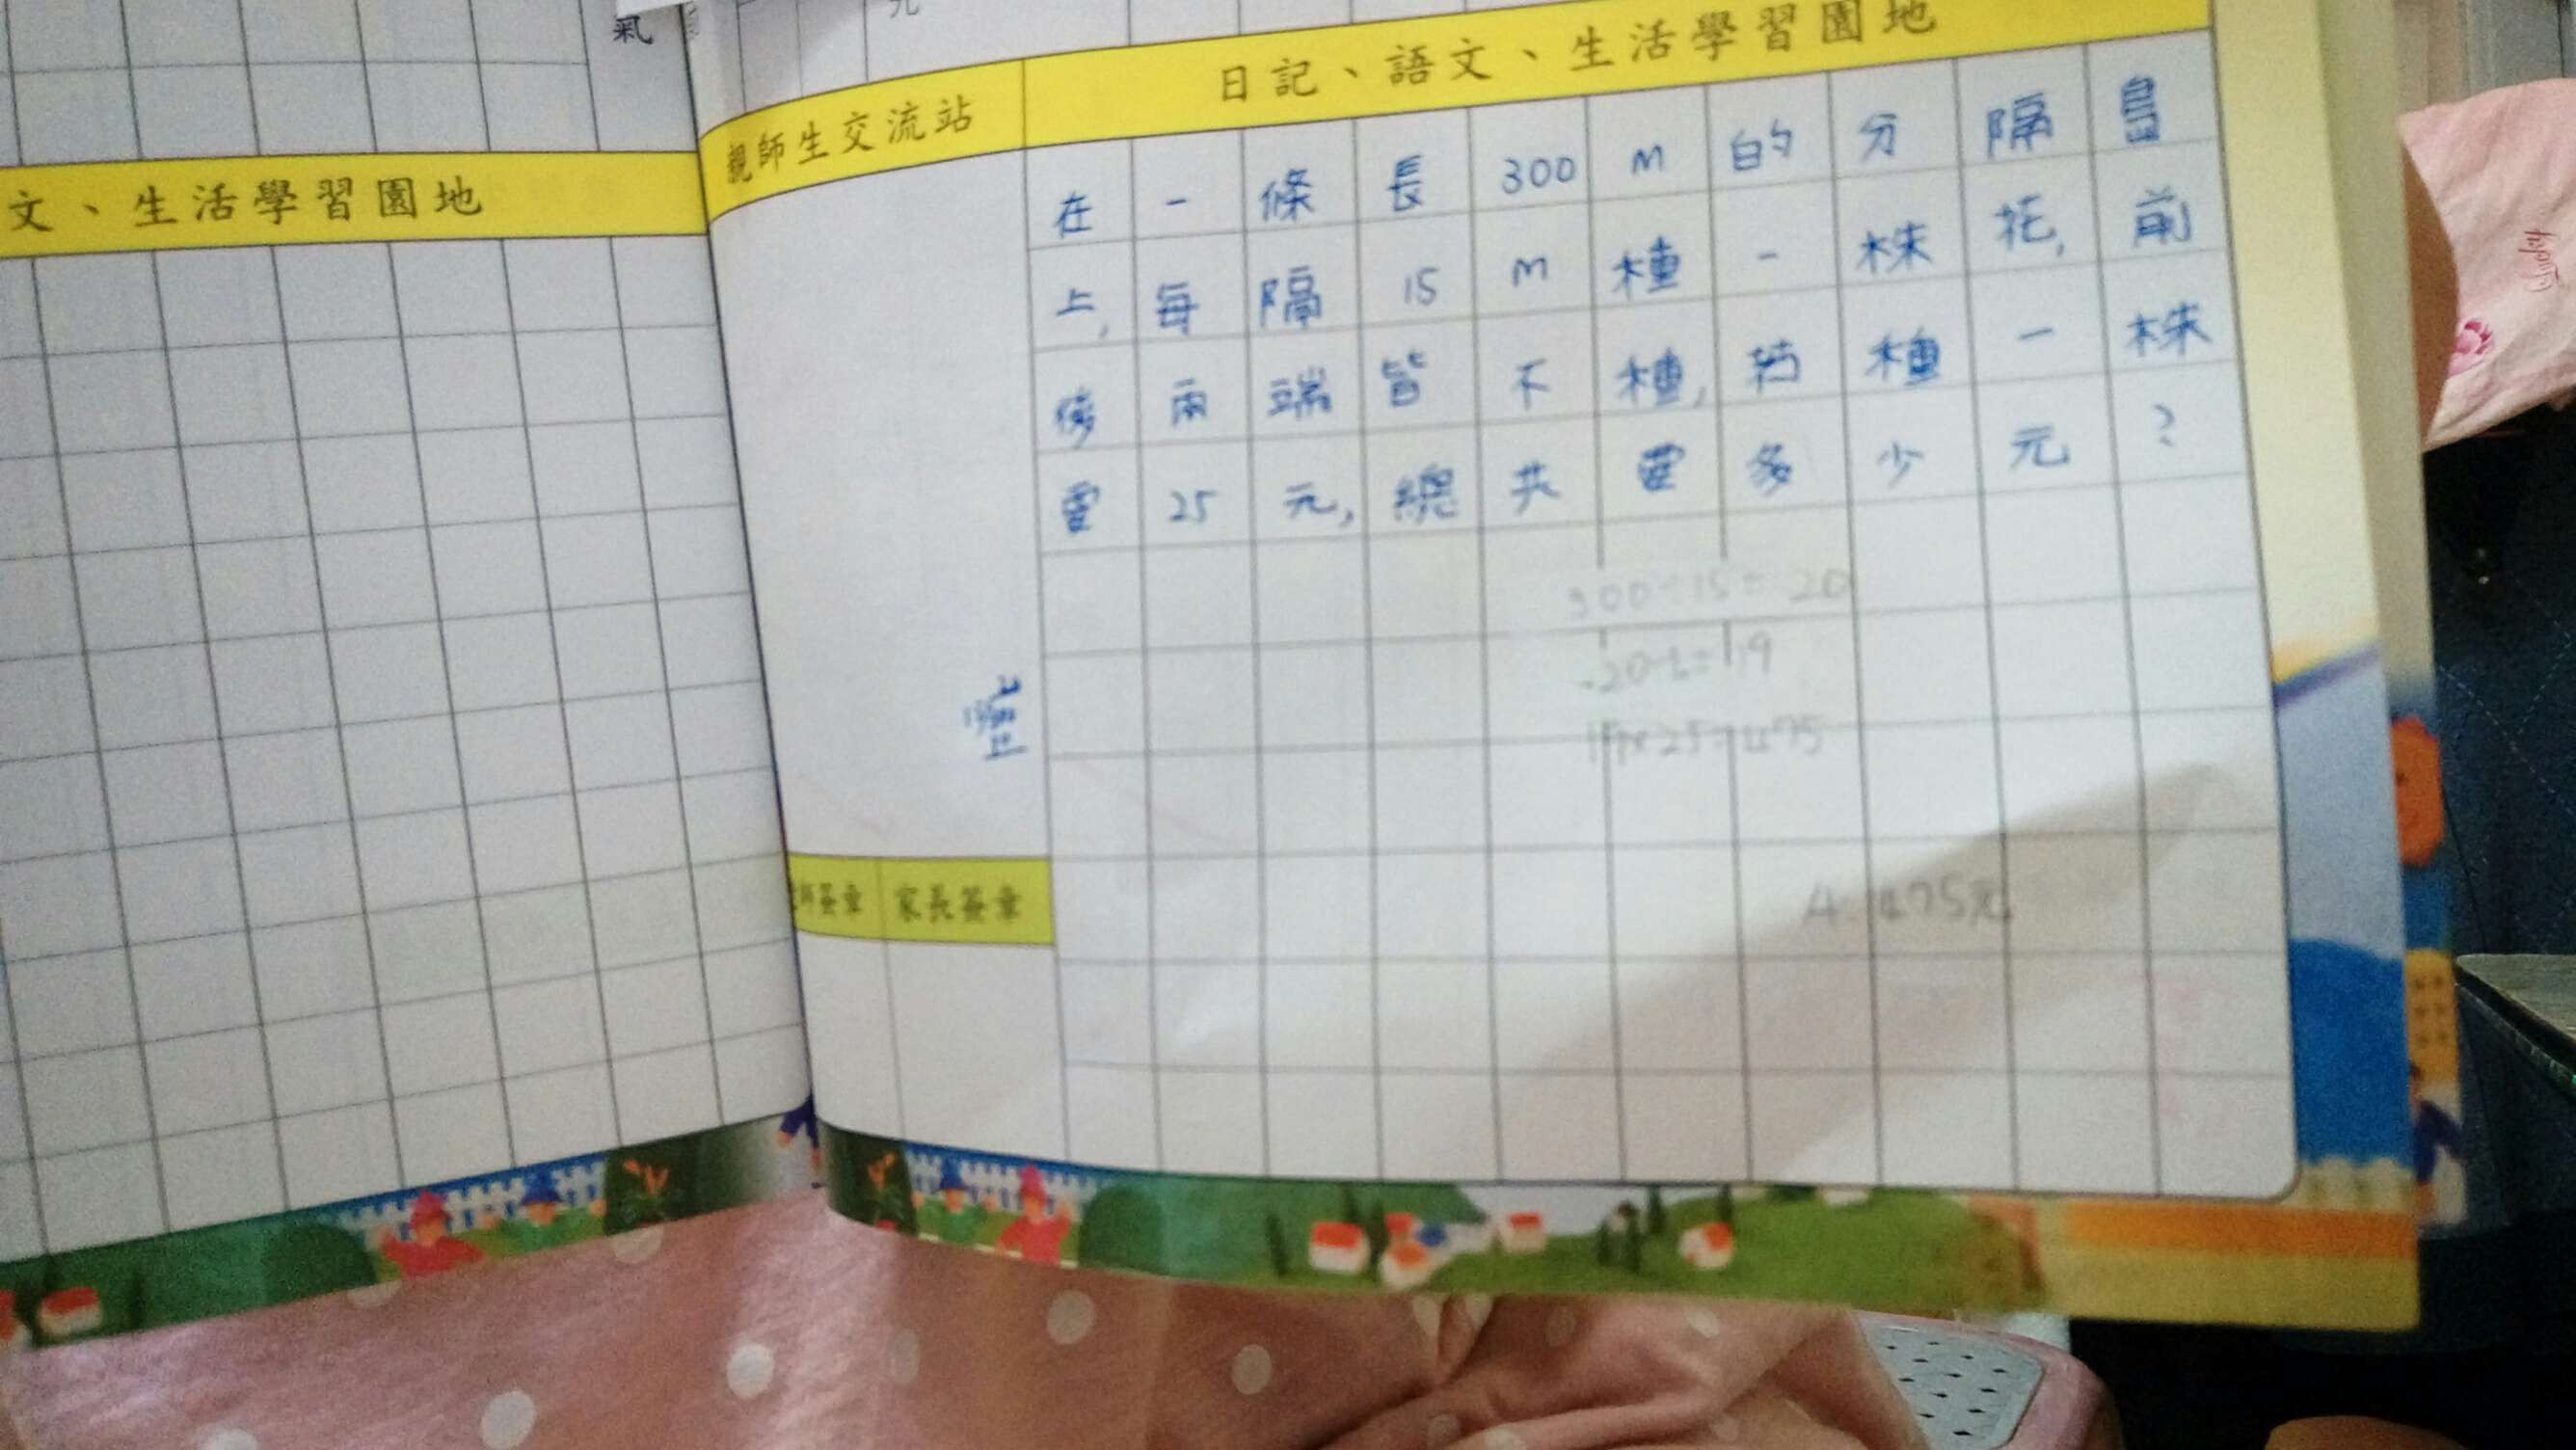 氣
元
文、生活學習園地
親師生交流站
日記、語文、生活學習園地
在一條長300m的分隔島
上,每隔15m種一株花,前
後兩端皆不種,若種一株
要25元,總共要多少元?
300÷15=20
20-1=19
19×25=475
A:475元
家長簽章